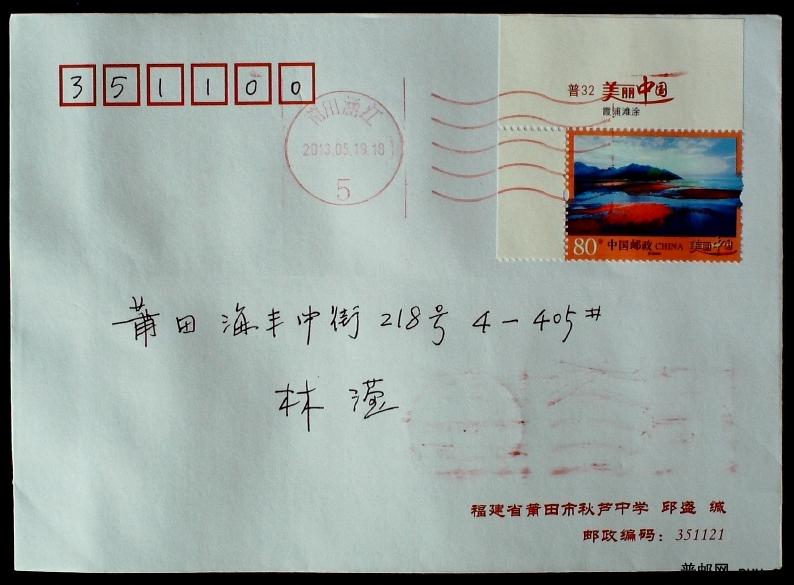 351100
普32 美丽中国
霞浦滩涂
莆田涵江
2013.05.19.18
5
80分 中国邮政 CHINA 美丽中国
莆田 海丰中街 218号 4-405#
林 滢
福建省莆田市秋芦中学 邱盛 缄
邮政编码：351121
普邮网